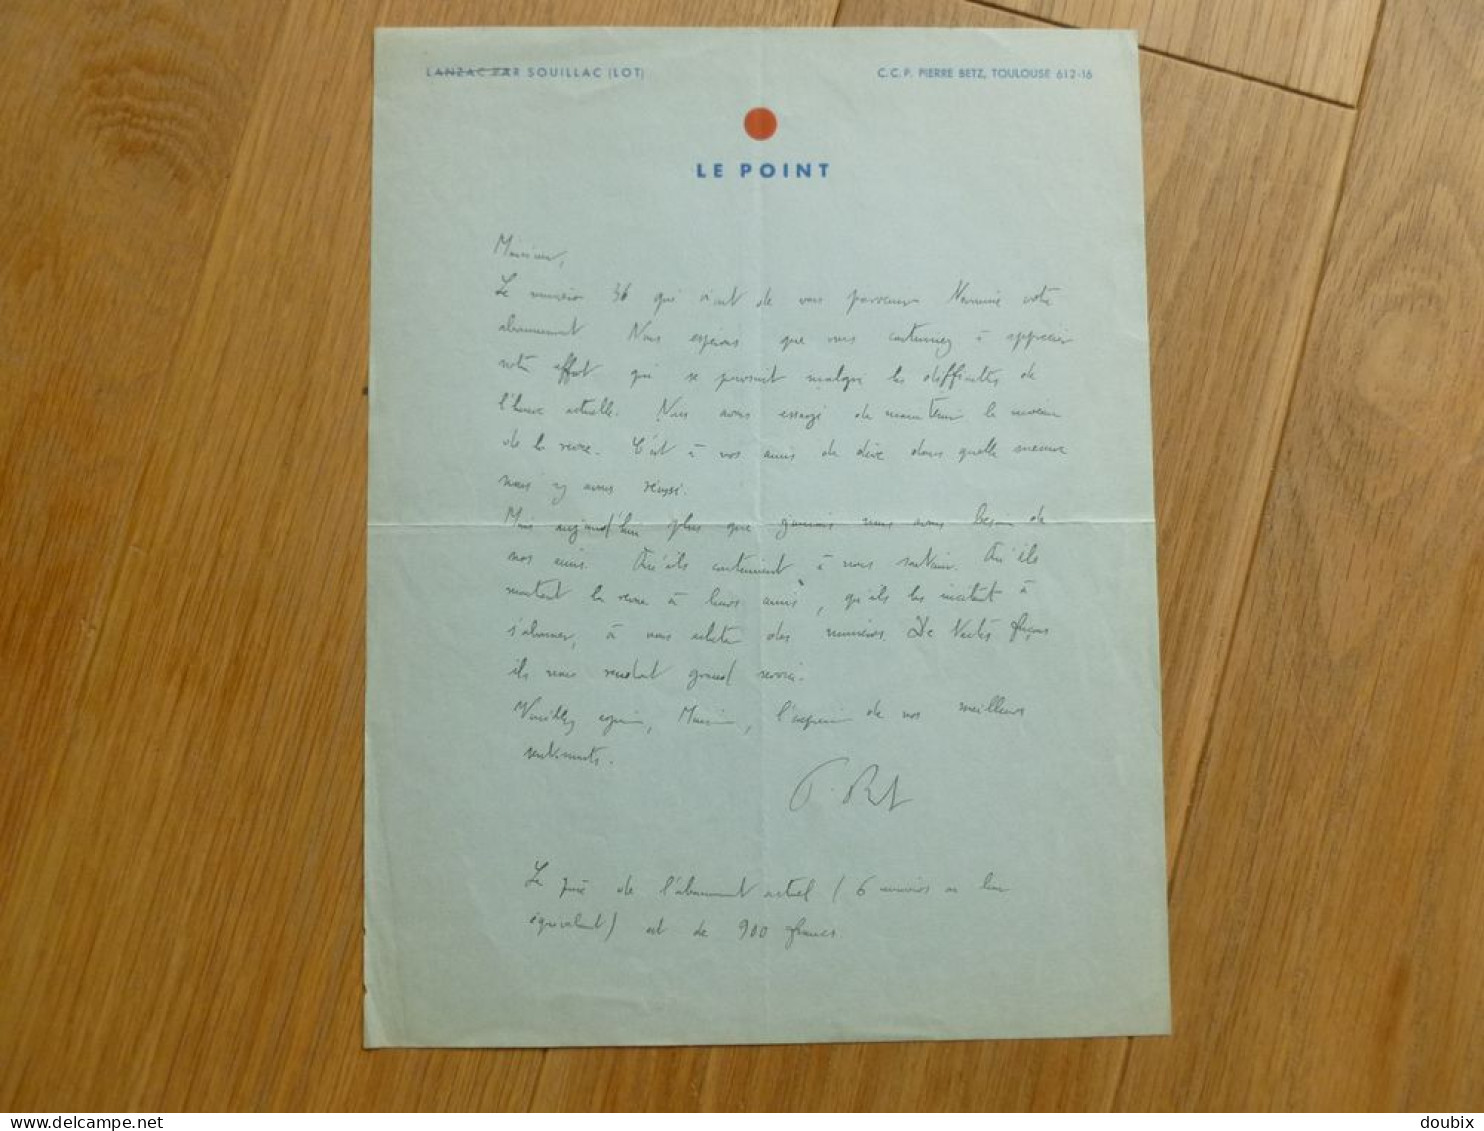 LANZAC PAR SOUILLAC (LOT)
C.C.P. PIERRE BETZ, TOULOUSE 612-16
LE POINT
Monsieur,
Le numéro 36 qui vient de vous parvenir termine votre
abonnement. Nous espérons que vous continuez à apprécier
notre effort qui se poursuit malgré les difficultés de
l'heure actuelle. Nous avons essayé de maintenir le niveau
de la revue. C'est à nos amis de dire dans quelle mesure
nous y avons réussi.
Mais aujourd'hui plus que jamais nous avons besoin de
nos amis. Qu'ils continuent à nous soutenir. Qu'ils
montrent la revue à leurs amis, qu'ils les incitent à
s'abonner, à nous acheter des numéros. De toutes façons
ils nous rendront grand service.
Veuillez agréer, Monsieur, l'expression de nos meilleurs
sentiments.
P. Betz
Le prix de l'abonnement actuel (6 numéros ou leur
équivalent) est de 900 francs.
delcampe.net
doubix